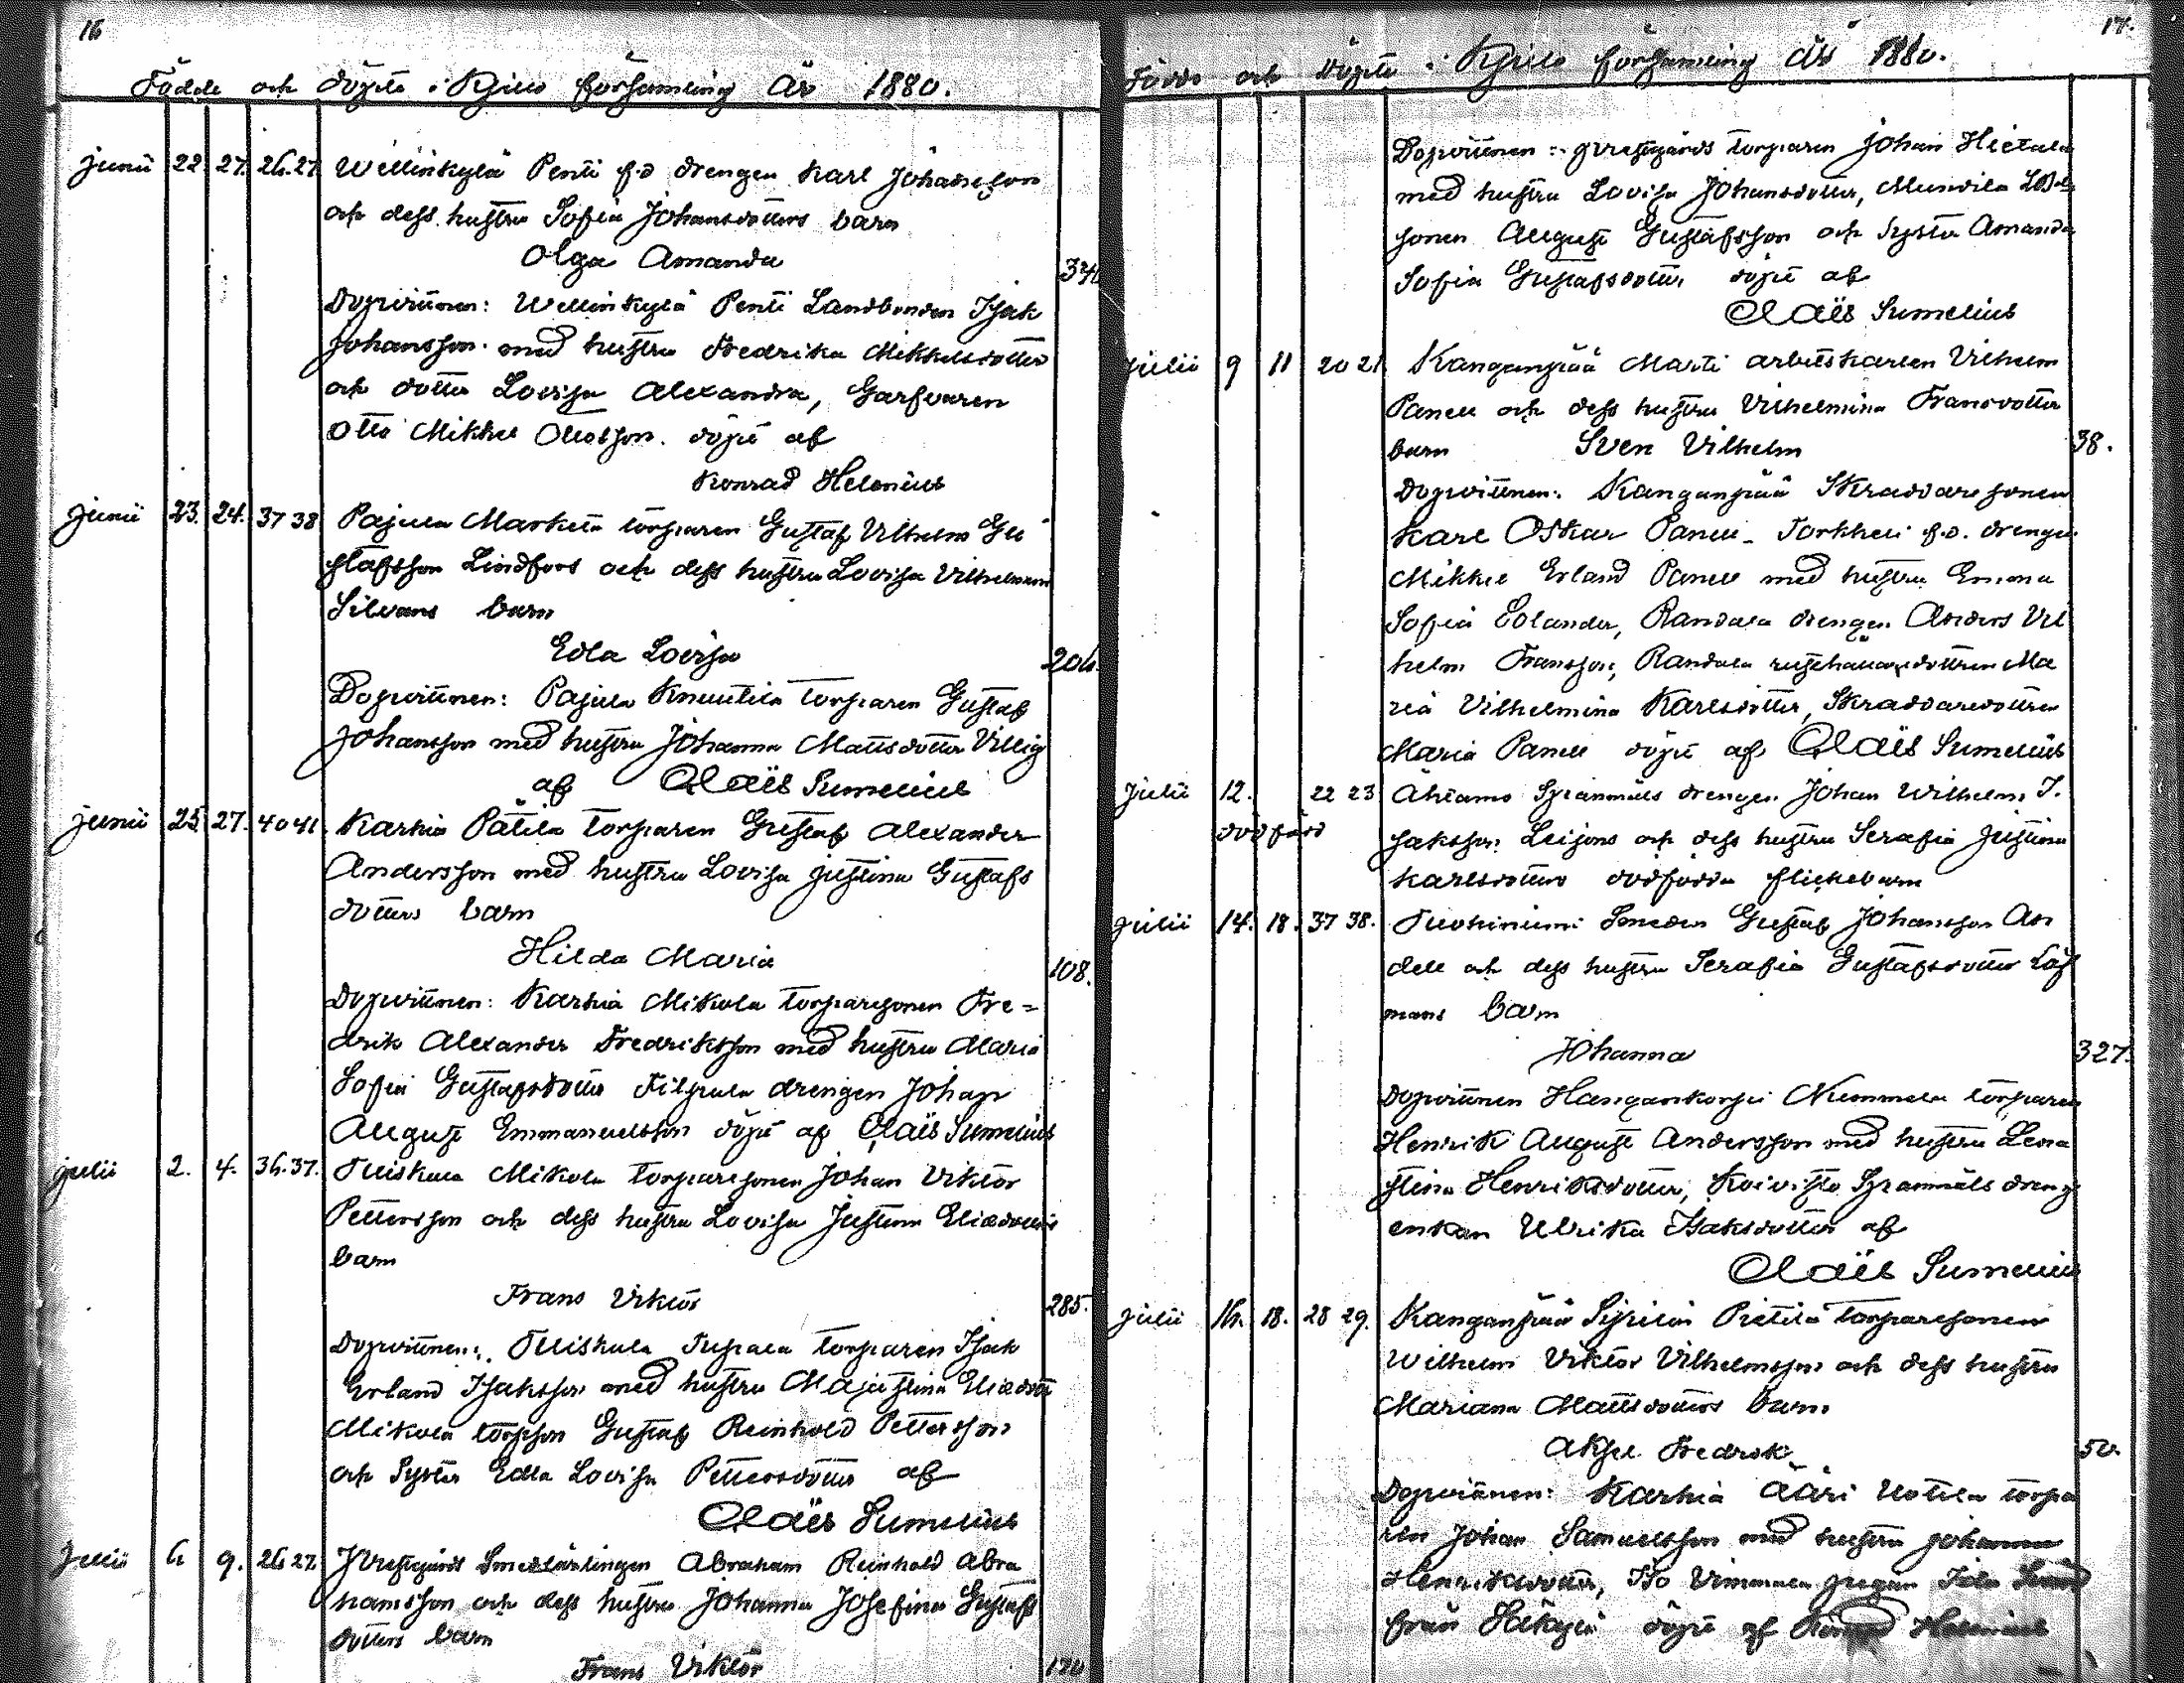 16
Födde och döpte i Kjulo församling År 1880.
junii 22 27. 26.27 Wellinkylä Penti f.d drengen Karl Johansson
och dess hustru Sofia Johansdotters barn
Olga Amanda 341
Dopvittnen: Wellinkylä Penti Landbonden Isak
Johansson med hustru Fredrika Mikkelsdotter
och dotter Lovisa Alexandra, Garfvaren
Otto Mikkel Ollosson. döpt af
Konrad Helenius
junii 23. 24. 37 38 Pajula Marketa torparen Gustaf Vilhelm Gu
stafsson Lindfors och dess hustru Lovisa Vilhelmina
Silvans barn
Edla Lovisa 206.
Dopvittnen: Pajula Knuutila torparen Gustaf
Johansson med hustru Johanna Mattsdotter Villig
af Claës Sumelius
junii 25 27. 40 41. Karhia Pätilä torparen Gustaf Alexander
Andersson med hustru Lovisa Justina Gustafs
dotters barn
Hilda Maria 108.
Dopvittnen: Karhia Mikola torparesonen Fre=
drik Alexander Fredriksson med hustru Maria
Sofia Gustafsdotter Filpula drengen Johan
August Emmanuelsson döpt af Claës Sumelius
julii 2. 4. 36.37. Tuiskula Mikola torparesonen Johan Viktor
Pettersson och dess hustru Lovisa Justina Eliædotters
barn
Frans Viktor 285.
Dopvittnen: Tuiskula Tupala torparen Isak
Erland Isaksson med hustru Maja Stina Eliædotter
Mikola torpson Gustaf Reinhold Pettersson
och Syster Edla Lovisa Pettersdotter af
Claës Sumelius
Julii 6 9. 26 27. Prestgårds Smedlärlingen Abraham Reinhold Abra
hamsson och dess hustru Johanna Josefina Gustafs
dotters barn
Frans Viktor 170
17.
Födde och döpte i Kjulo församling År 1880.
Dopvittnen: prestgårds torparen Johan Hietala
med hustru Lovisa Johansdotter, Munoila
sonen August Gustafsson och Syster Amanda
Sofia Gustafsdotter döpt af
Claës Sumelius
Julii 9 11 20 21. Kanganpää Marti arbetskarlen Vilhelm
Panell och dess hustru Vilhelmina Fransdotter
barn Sven Vilhelm 38.
Dopvittnen: Kanganpää Skraddaresonen
Karl Oskar Panell Torkkeli f.d. drengen
Mikkel Erland Panell med hustru Emma
Sofia Eolander, Randala drengen Anders Vil
helm Fransson, Randala rusthållaredottren Ma
ria Vilhelmina Karlsdotter, Skraddaredottren
Maria Panell döpt af Claës Sumelius
Julii 12. 22 23 Ahlamo Spanmäls drengen Johan Wilhelm I.
dödfödd saksson Leijons och dess hustru Serafia Justina
Karlsdotters dödfödda flickebarn
Julii 14. 18. 37 38. Tuohiniemi Smeden Gustaf Johansson An
dell och dess hustru Serafia Gustafsdotter Löf
mans barn
Johanna 327.
Dopvittnen Hangankorpi Nummela torparen
Henrik August Andersson med hustru Lena
Stina Henriksdotter, Koivisto Spanmäls dreng
enkan Ulrika Isaksdotter af
Claës Sumelius
Julii 16. 18. 28 29. Kanganpää Sipilä Pietilä torparesonen
Wilhelm Viktor Vilhelmsson och dess hustru
Mariana Mattsdotters barn
Aksel Fredrik 50.
Dopvittnen: Karhia Ääri Uotila torpa
ren Johan Samuelsson med hustru Johanna
Henriksdotter, Iso Vimmala pigan Ida
från döpt af Konrad Helenius